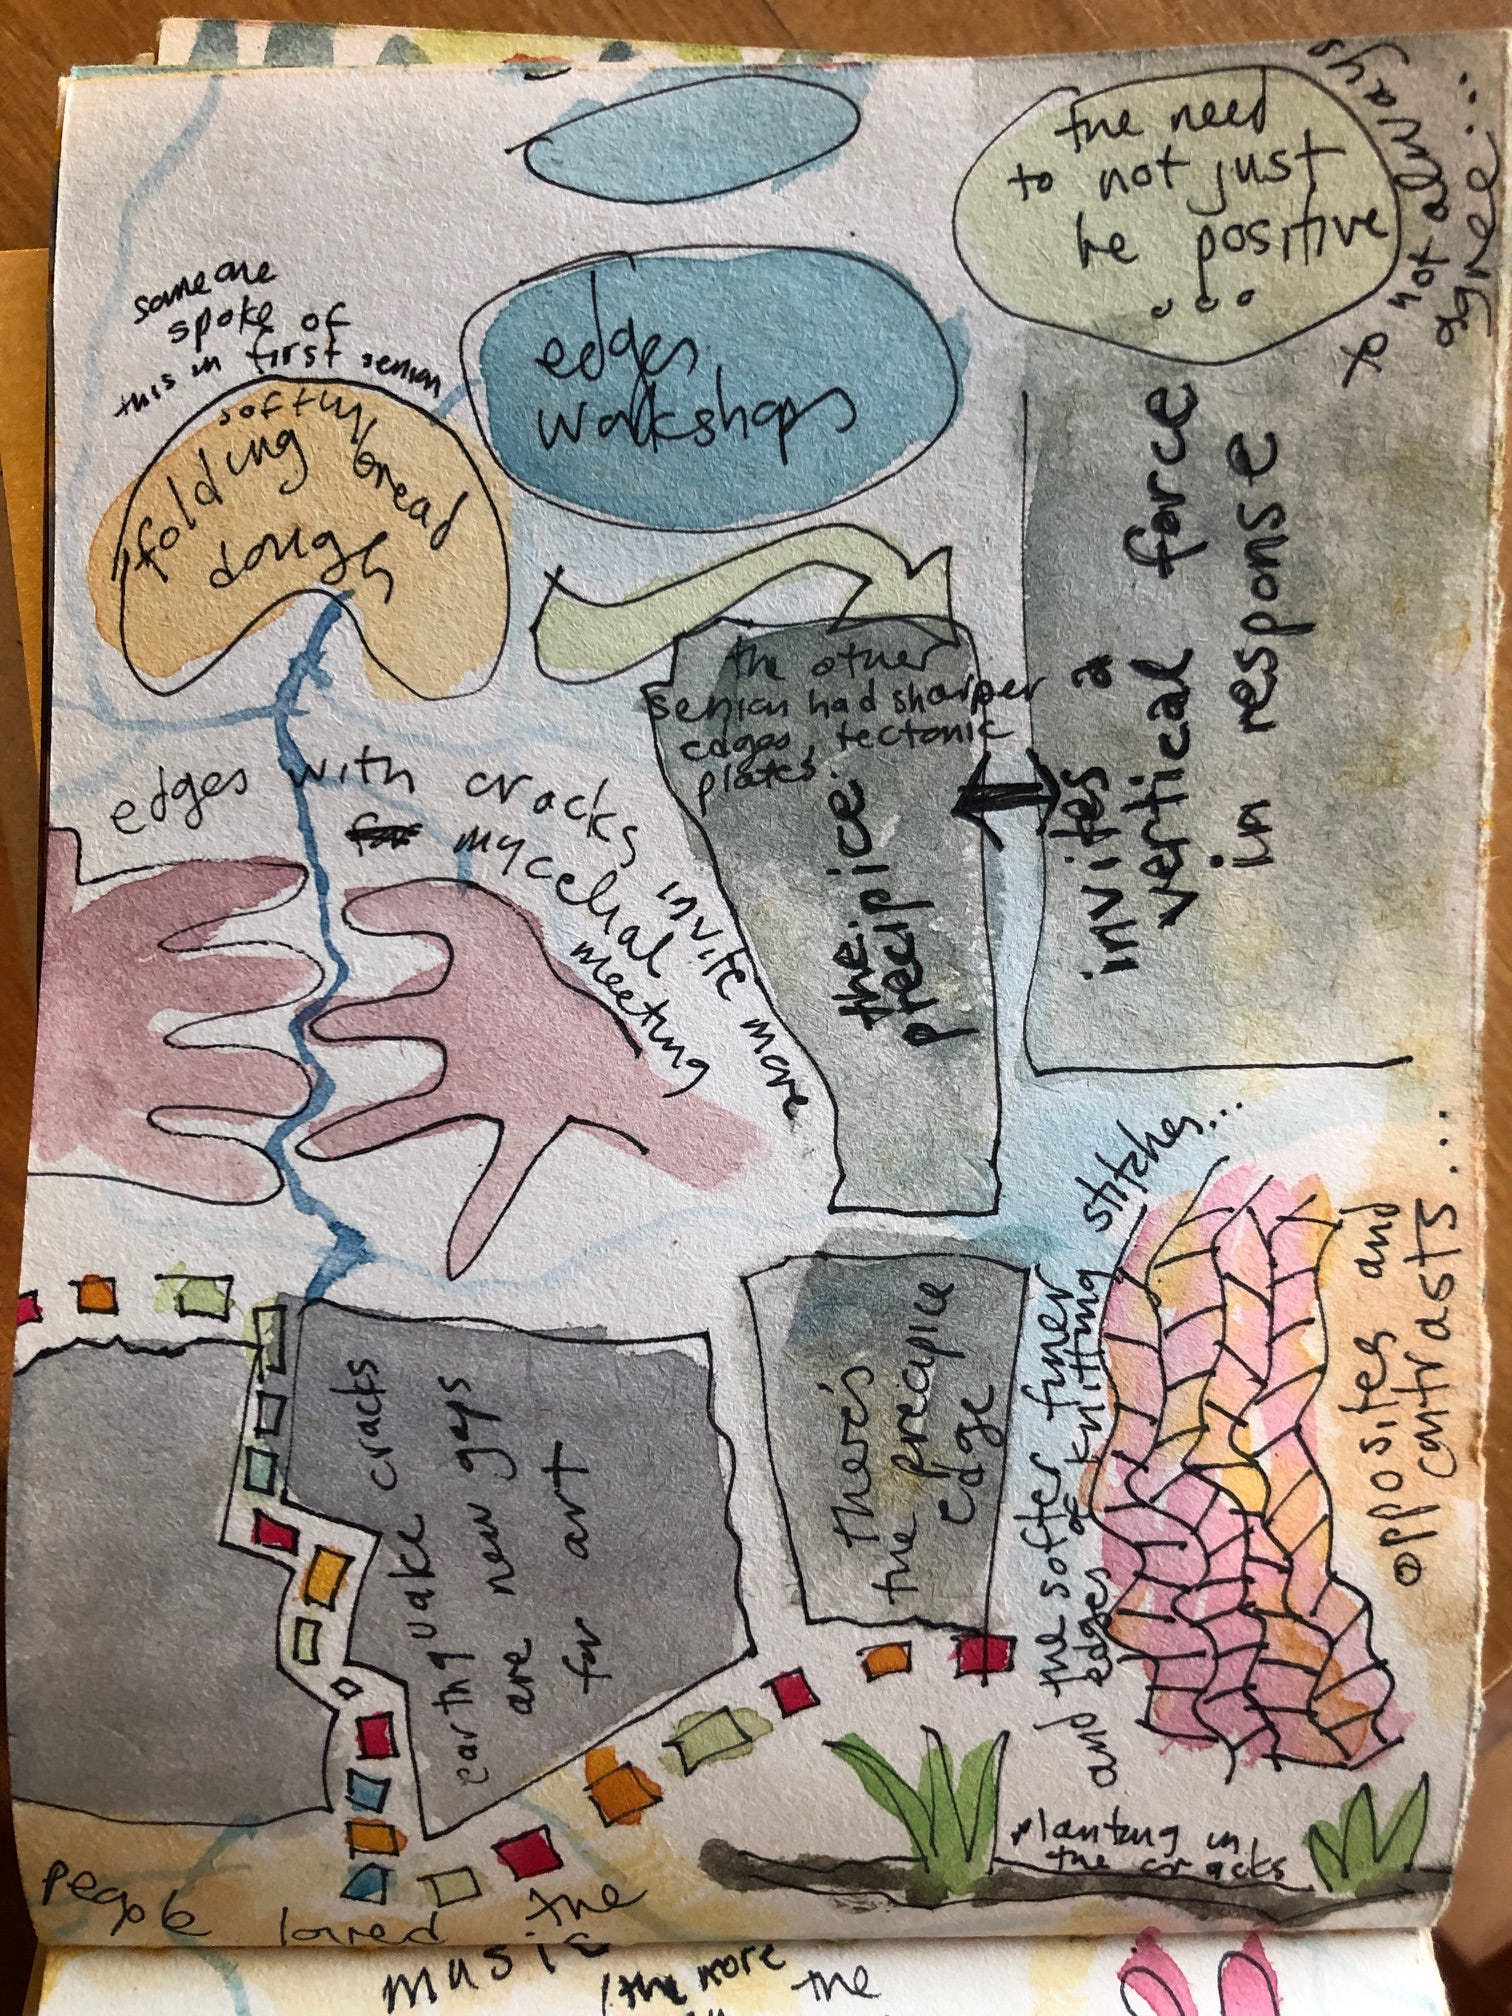 the need
to not just
be positive
...
to not always
agree...
someone
spoke of
this in first session
softly
"folding bread
dough
edges
workshops
the other
session had sharper
edges, tectonic
plates.
the precipice
invites a
vertical force
in response
edges with cracks invite more
for mycelial
meeting
earthquake cracks
are new gaps
for art
there's
the precipice
edge
and the softer finer
edges of knitting stitches...
opposites and
contrasts...
planting in
the cracks
People loved the
music
the more the